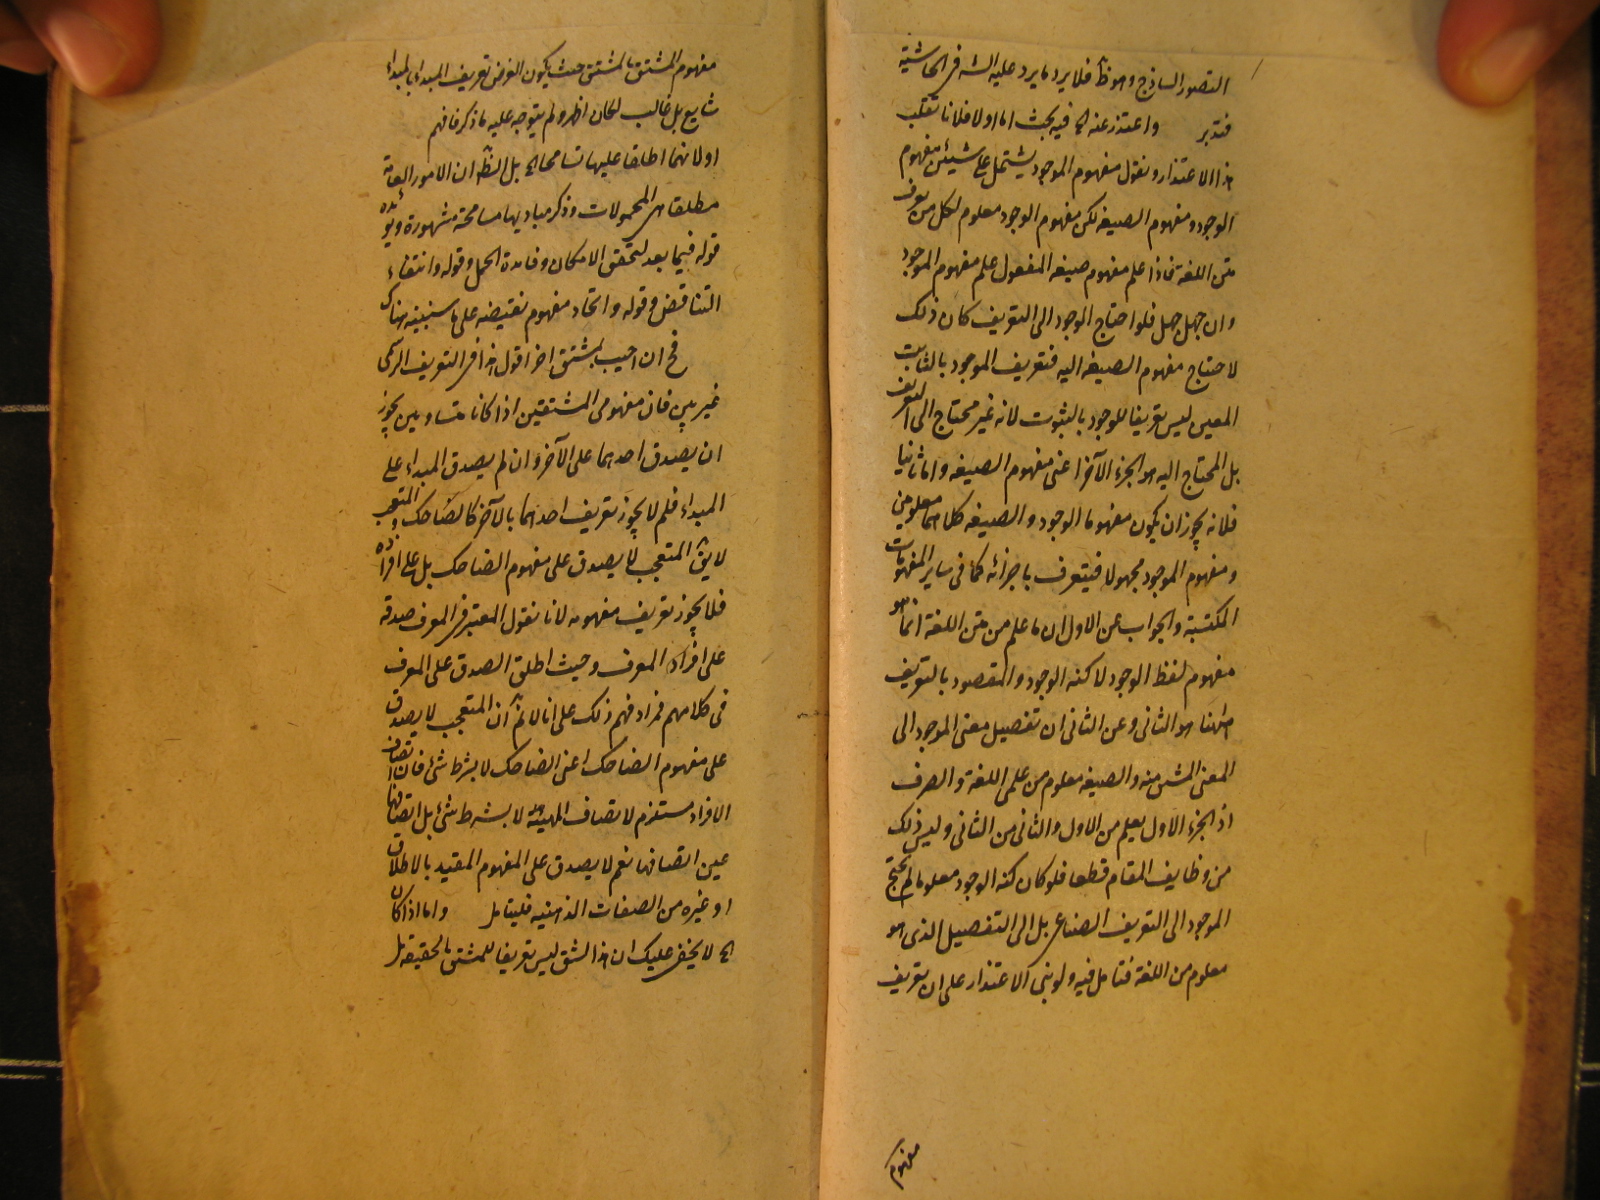 التصور الساذج وهو ظ فلا يرد ما يرد عليه الشه فى الحاشية
فتدبر واعتذر عنه الخ فيه بحث اما اولا فلانا نقلب
هذا الاعتذار ونقول مفهوم الموجود يشتمل على شيئين مفهوم
الوجود ومفهوم الصيغة لكن مفهوم الوجود معلوم لكل من يعرف
متن اللغة فاذا علم مفهوم صيغة المفعول علم مفهوم الموجود
وان جهل جهل فلو احتاج الموجود الى التعريف كان ذلك
لاحتياج مفهوم الصيغة اليه فتعريف الموجود بالثابت
المعين ليس تعريفا للوجود بالثبوت لانه غير محتاج الى التعريف
بل المحتاج اليه هو الجزء الآخر اعنى مفهوم الصيغة واما ثانيا
فلانه يجوز ان يكون مفهوما الوجود والصيغة كلاهما معلومين
ومفهوم الموجود مجهولا فيتعرف باجزائه كما فى ساير المفهومات
المكتسبة والجواب عن الاول ان ما علم من متن اللغة انما هو
مفهوم لفظ الوجود لا كنه الوجود والمقصود بالتعريف
ههنا هو الثانى وعن الثانى ان تفصيل معنى الموجود الى
المعنى المشتق منه والصيغة معلوم من علمى اللغة والصرف
اذ الجزء الاول يعلم من الاول والثانى من الثانى وليس ذلك
من وظايف المقام قطعا فلو كان كنه الوجود معلوما لم يحتج
الموجود الى التعريف الصناعى بل الى التفصيل الذى هو
معلوم من اللغة فتامل فيه ولو بنى الاعتذار على ان تعريف
مفهوم
مفهوم المشتق بالمشتق حيث يكون الغرض تعريف المبداء بالمبداء
شايع بل غالب لكان اظهر ولم يتوجه عليه ما ذكر فافهم
اولانهما اطلقا عليها تسامحا الخ بل الظ ان الامور العامة
مطلقا هى المحمولات وذكر مباديها مسامحة مشهورة ويؤيده
قوله فيما بعد لتحقق الامكان وفائدة الحمل وقوله وانتفاء
التناقض وقوله واتحاد مفهوم نقيضه على ما سنبينه هناك
فح ان اجيب بمشتق اخر اقول هذا فى التعريف الرسمى
غير بين فان مفهومى المشتقين اذا كانا متساويين يجوز
ان يصدق احدهما على الآخر وان لم يصدق المبداء على
المبداء فلم لا يجوز تعريف احدهما بالآخر كالضاحك والمتعجب
لا يق المتعجب لا يصدق على مفهوم الضاحك بل على افراده
فلا يجوز تعريف مفهومه لانا نقول المعتبر فى المعرف صدقه
على افراد المعرف وحيث اطلق الصدق على المعرف
فى كلامهم فمرادهم ذلك على انا لا نم ان المتعجب لا يصدق
على مفهوم الضاحك اعنى الضاحك لا بشرط شئ فان اتصاف
الافراد مستلزم لاتصاف المهية لا بشرط شئ بل اتصافها
عين اتصافها نعم لا يصدق على المفهوم المقيد بالاطلاق
او غيره من الصفات الذهنية فليتامل واما اذا كان
الخ لا يخفى عليك ان هذا الشق ليس تعريفا للمشتق بالحقيقة بل